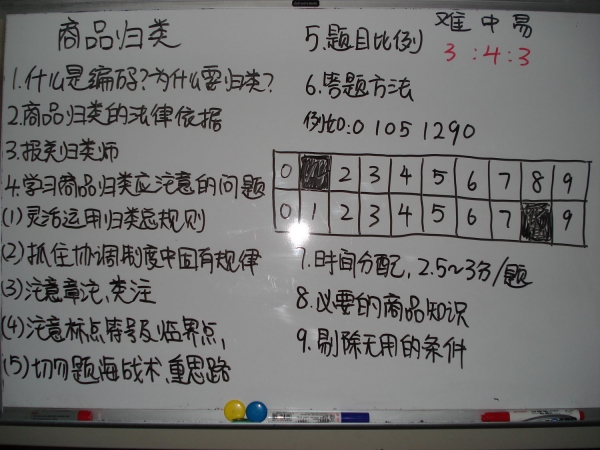 商品归类
1.什么是编码?为什么要归类?
2.商品归类的法律依据
3.报关归类师
4.学习商品归类应注意的问题
(1)灵活运用归类总规则
(2)抓住协调制度中固有规律
(3)注意章注、类注
(4)注意标点符号及临界点,
(5)切勿题海战术,重思路
难 中 易
5.题目比例 3:4:3
6.答题方法
例如:0 1051290
0 2 3 4 5 6 7 8 9
0 1 2 3 4 5 6 7 9
7.时间分配,2.5~3分/题
8.必要的商品知识
9.剔除无用的条件